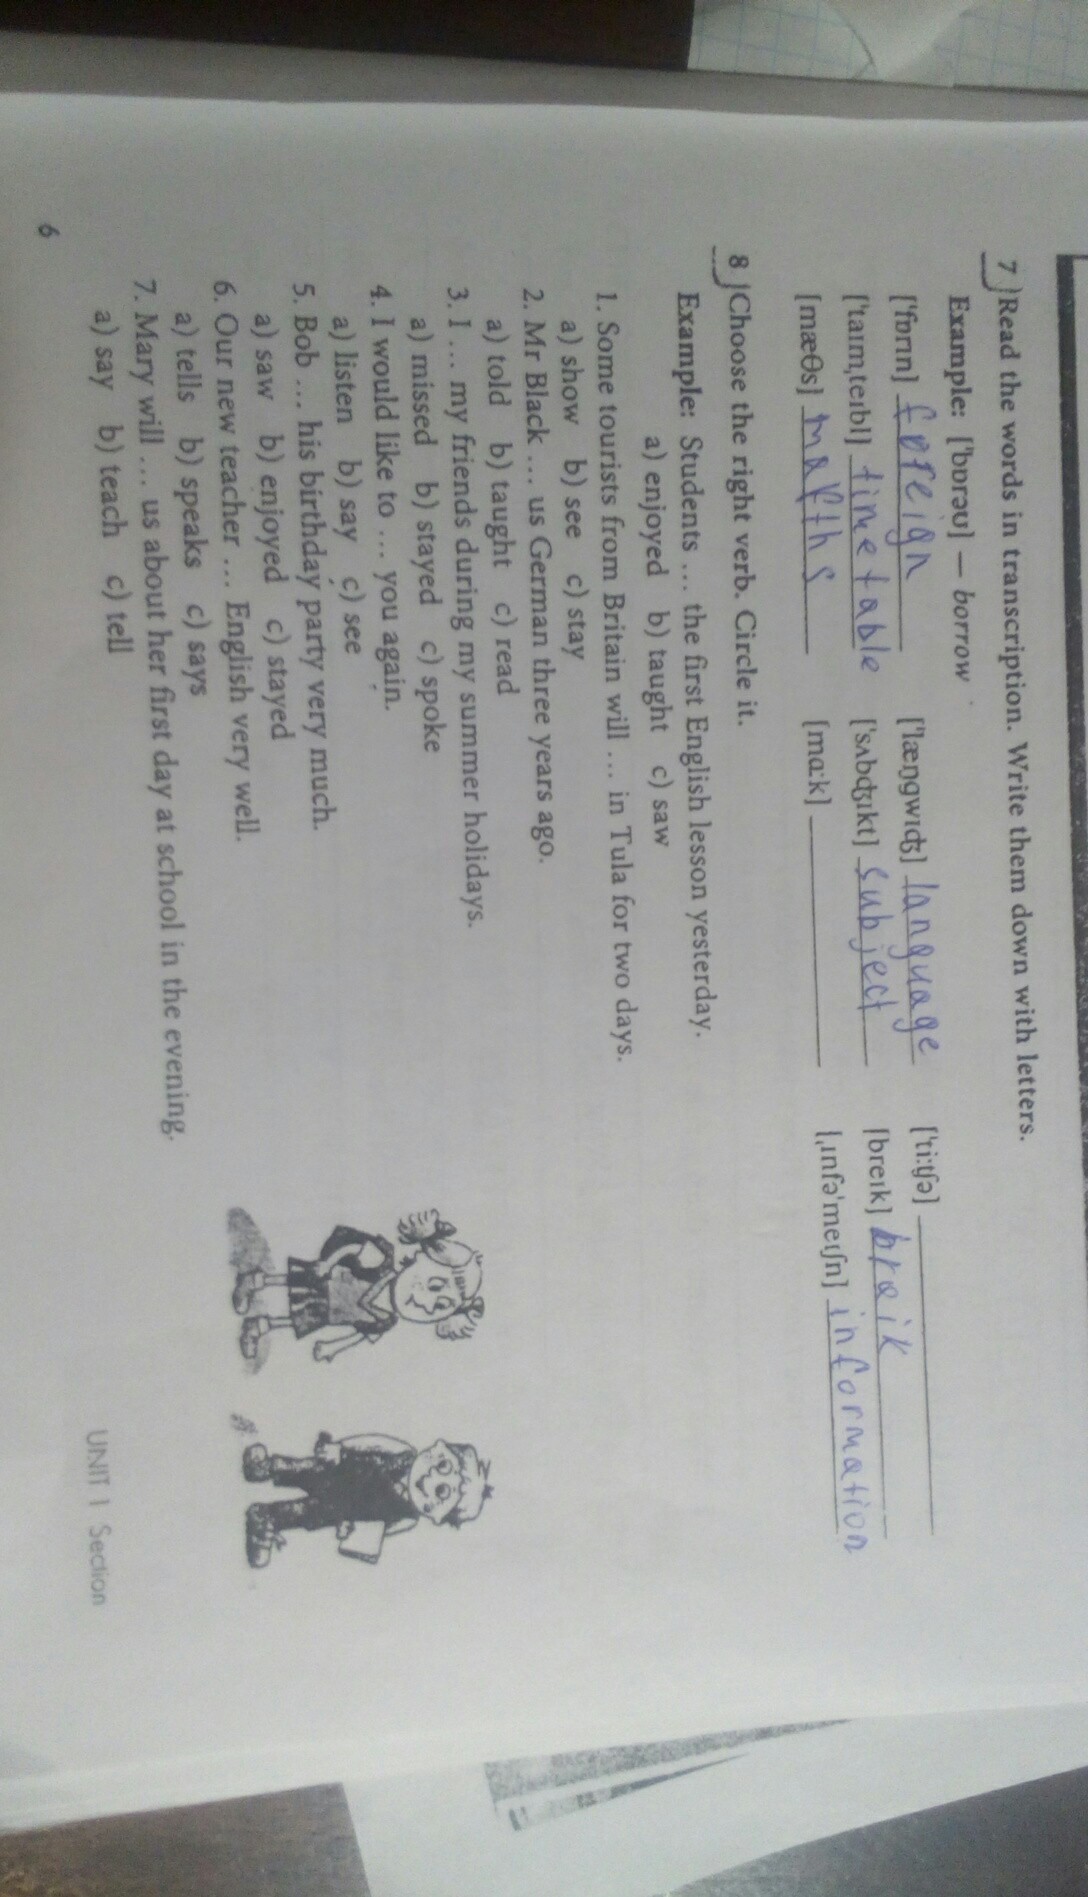 7 Read the words in transcription. Write them down with letters.
Example: ['bɒrəʊ] — borrow
['fɒrɪn] foreign ['læŋgwɪʤ] language ['ti:ʧə]
['taɪm,teɪbl] timetable ['sʌbʤɪkt] subject [breɪk] braik
[mæθs] mafths [mɑ:k] [,ɪnfə'meɪʃn] information
8 Choose the right verb. Circle it.
Example: Students ... the first English lesson yesterday.
a) enjoyed b) taught c) saw
1. Some tourists from Britain will ... in Tula for two days.
a) show b) see c) stay
2. Mr Black ... us German three years ago.
a) told b) taught c) read
3. I ... my friends during my summer holidays.
a) missed b) stayed c) spoke
4. I would like to ... you again.
a) listen b) say c) see
5. Bob ... his birthday party very much.
a) saw b) enjoyed c) stayed
6. Our new teacher ... English very well.
a) tells b) speaks c) says
7. Mary will ... us about her first day at school in the evening.
a) say b) teach c) tell
6
UNIT 1 Section